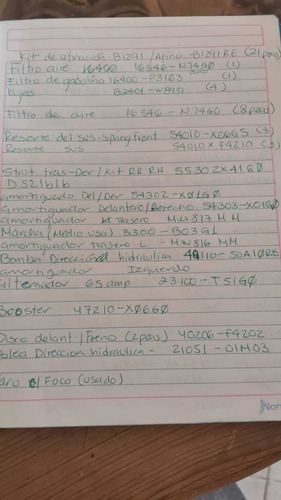 Kit de afinación B1291 / Afina-B1291RE (21 pzas)
Filtro aire 16400 16546-N74G0 (1)
Filtro de gasolina 16400-P3163 (1)
bujias B2401-W8951 (4)
Filtro de aire 16546-N7460 (8 pzas)
Resorte del sus-Spring front 54010-X06G5 (3)
Resorte sus 54010X F4210 (3)
Strut tras-Der/Kit RR RH 55302X41G0
D521616
amortiguado Del/Der 54302-X01G0
amortiguador Delantero/Derecho 54303-XC01G
amortiguador Trasero MW817MM
Marcha (Medio uso) 3300-B03G1
amortiguador trasero L - MW816 MM
Bomba Direccional hidraulica 49110-50A10RE
amortiguador Izquierdo
alternador 65 amp. 23100-T51G0
Booster 47210-X0660
Disco delant./Freno (2 pzas) 40206-F4202
Polea Direccion hidraulica - 21051-01M03
aro c/Foco (usado)
Nor